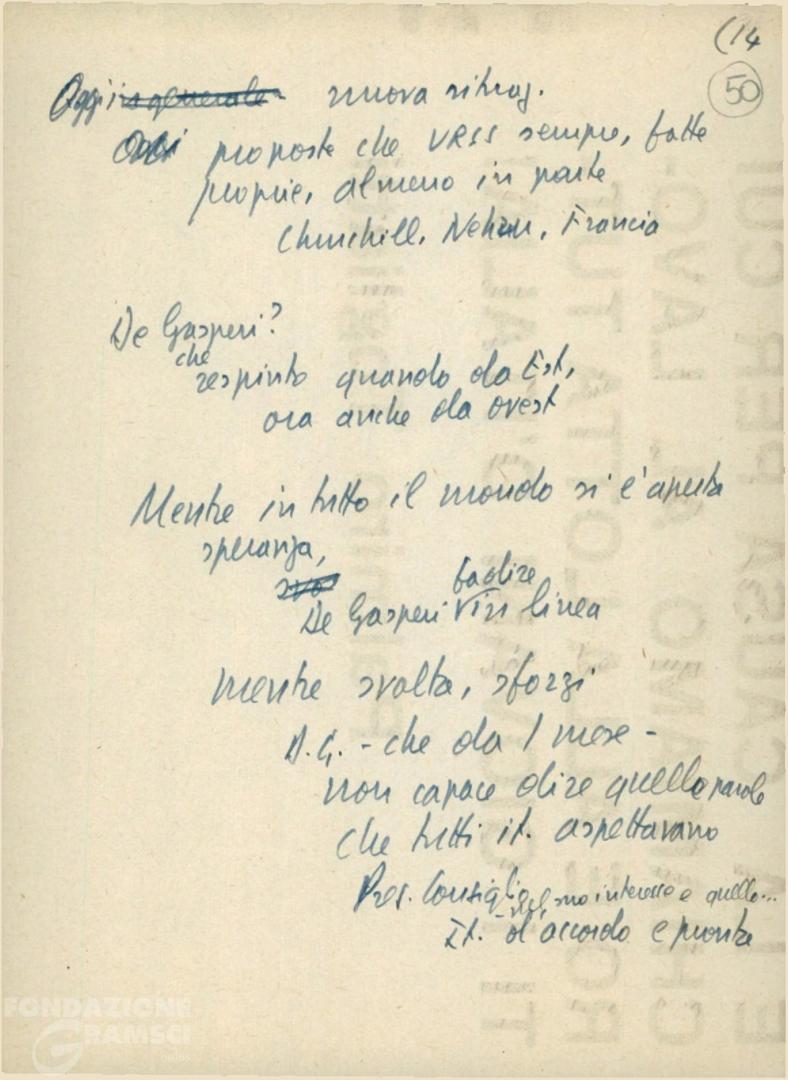 (14
50
Oggi in generale nuova situaz.
Oggi proposte che URSS sempre, fatte
proprie, almeno in parte
Churchill, Nehru, Francia
De Gasperi?
che
respinto quando da Est,
ora anche da ovest
Mentre in tutto il mondo si è aperta
speranza,
svo
fa dire
De Gasperi vin linea
mentre svolta, sforzi
D.G. - che da 1 mese -
non capace dire quelle parole
che tutti it. aspettavano
Pres. Consiglio nel suo interesse e quello...
It. d'accordo e pronta
FONDAZIONE
GRAMSCI